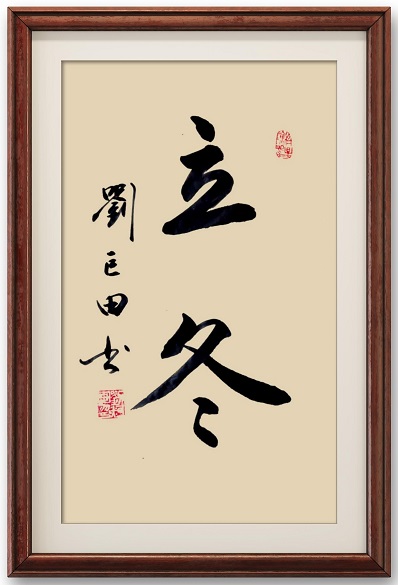 立冬
劉巨田书